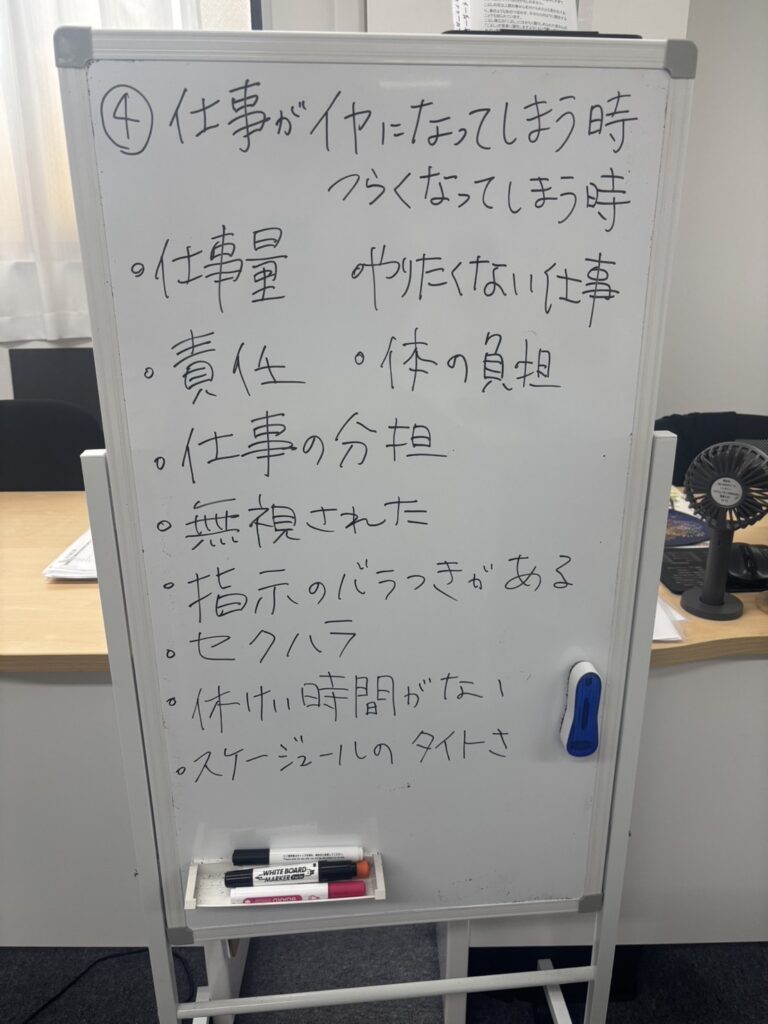 ④ 仕事がイヤになってしまう時
つらくなってしまう時
・仕事量 ・やりたくない仕事
・責任 ・体の負担
・仕事の分担
・無視された
・指示のバラつきがある
・セクハラ
・休けい時間がない
・スケージュールのタイトさ
WHITE BOARD
MARKER